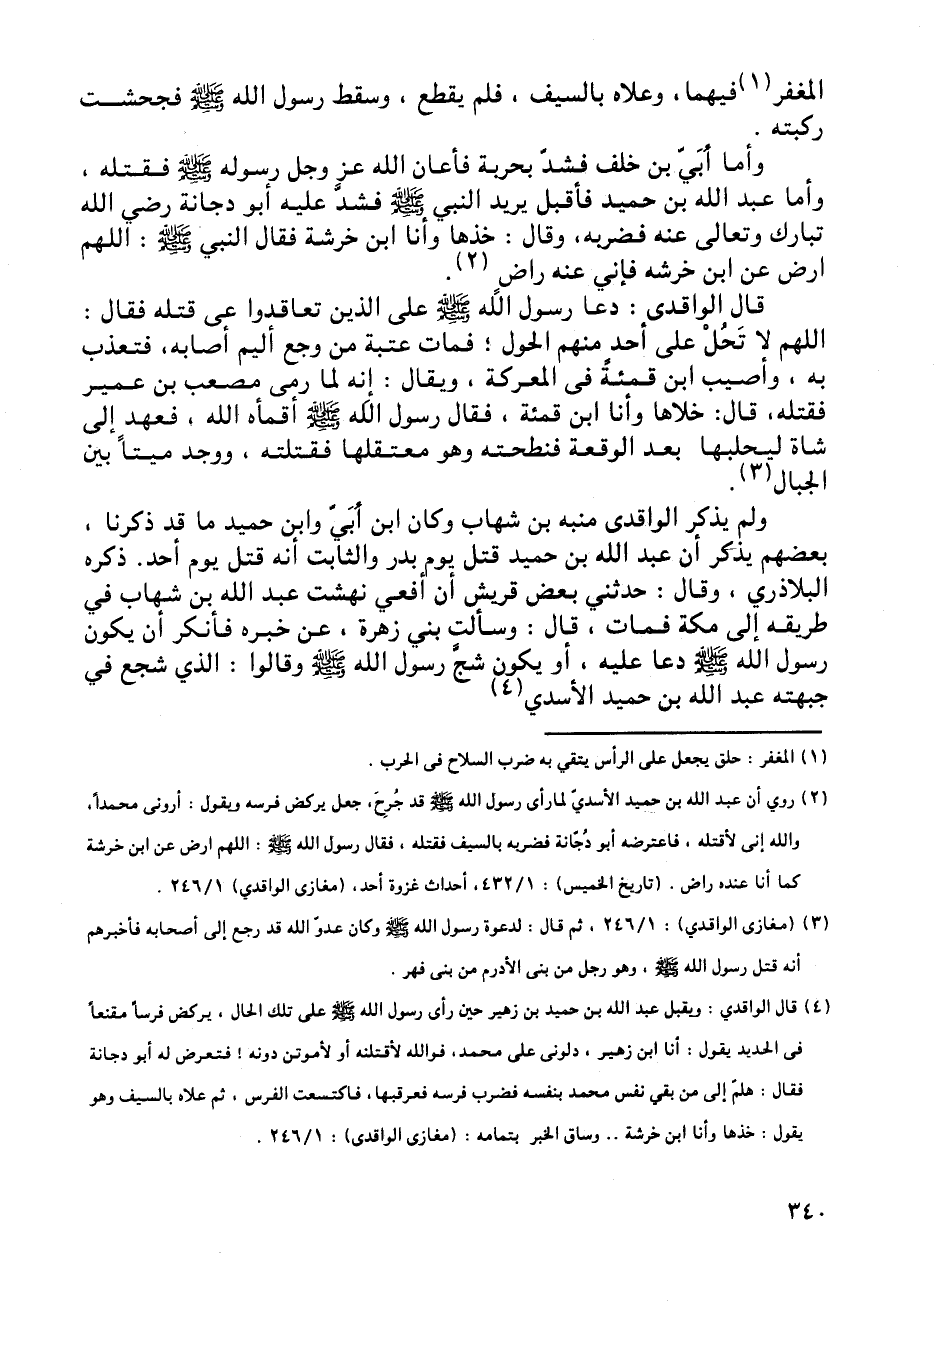 المغفر(١) فيهما، وعلاه بالسيف ، فلم يقطع ، وسقط رسول الله ﷺ فجحشت
ركبته .
وأما أُبَيّ بن خلف فشدّ بحربة فأعان الله عز وجل رسوله ﷺ فقتله ،
وأما عبد الله بن حميد فأقبل يريد النبي ﷺ فشدَّ عليه أبو دجانة رضي الله
تبارك وتعالى عنه فضربه، وقال : خذها وأنا ابن خرشة فقال النبي ﷺ : اللهم
ارض عن ابن خرشه فإني عنه راضٍ (٢).
قال الواقدى : دعا رسول الله ﷺ على الذين تعاقدوا عى قتله فقال :
اللهم لا تَحُلْ على أحد منهم الحول ؛ فمات عتبة من وجع أليم أصابه، فتعذب
به ، وأصيب ابن قمئةً فى المعركة ، ويقال : إنه لما رمى مصعب بن عمير
فقتله، قال: خلاها وأنا ابن قمئة ، فقال رسول الله ﷺ أقمأه الله ، فعهد إلى
شاة ليحلبها بعد الوقعة فنطحته وهو معتقلها فقتلته ، ووجد ميتاً بين
الجبال(٣).
ولم يذكر الواقدى منبه بن شهاب وكان ابن أُبَيّ وابن حميد ما قد ذكرنا ،
بعضهم يذكر أن عبد الله بن حميد قتل يوم بدر والثابت أنه قتل يوم أحد. ذكره
البلاذري ، وقال : حدثني بعض قريش أن أفعي نهشت عبد الله بن شهاب في
طريقه إلى مكة فمات ، قال : وسألت بني زهرة ، عن خبره فأنكر أن يكون
رسول الله ﷺ دعا عليه ، أو يكون شجَّ رسول الله ﷺ وقالوا : الذي شجع في
جبهته عبد الله بن حميد الأسدي(٤)
(١) المغفر : حلق يجعل على الرأس يتقي به ضرب السلاح فى الحرب .
(٢) روي أن عبد الله بن حميد الأسديّ لمارأى رسول الله ﷺ قد جُرحَ، جعل يركض فرسه ويقول : أرونى محمداً،
والله إنى لأقتله ، فاعترضه أبو دُجَانة فضربه بالسيف فقتله ، فقال رسول الله ﷺ : اللهم ارض عن ابن خرشة
كما أنا عنده راض . (تاريخ الخميس) : ٤٣٢/١، أحداث غزوة أحد، (مغازى الواقدي) ٢٤٦/١ .
(٣) (مغازى الواقدي) : ٢٤٦/١ ، ثم قال : لدعوة رسول الله ﷺ وكان عدوّ الله قد رجع إلى أصحابه فأخبرهم
أنه قتل رسول الله ﷺ ، وهو رجل من بنى الأدرم من بنى فهر .
(٤) قال الواقدي : ويقبل عبد الله بن حميد بن زهير حين رأى رسول الله ﷺ على تلك الحال ، يركض فرساً مقنعاً
فى الحديد يقول : أنا ابن زهير ، دلونى على محمد، فوالله لأقتلنه أو لأموتن دونه ! فتعرض له أبو دجانة
فقال : هلمّ إلى من بقي نفس محمد بنفسه فضرب فرسه فعرقبها، فاكتسعت الفرس ، ثم علاه بالسيف وهو
يقول : خذها وأنا ابن خرشة .. وساق الخبر بتمامه : (مغازى الواقدى) : ٢٤٦/١ .
٣٤٠